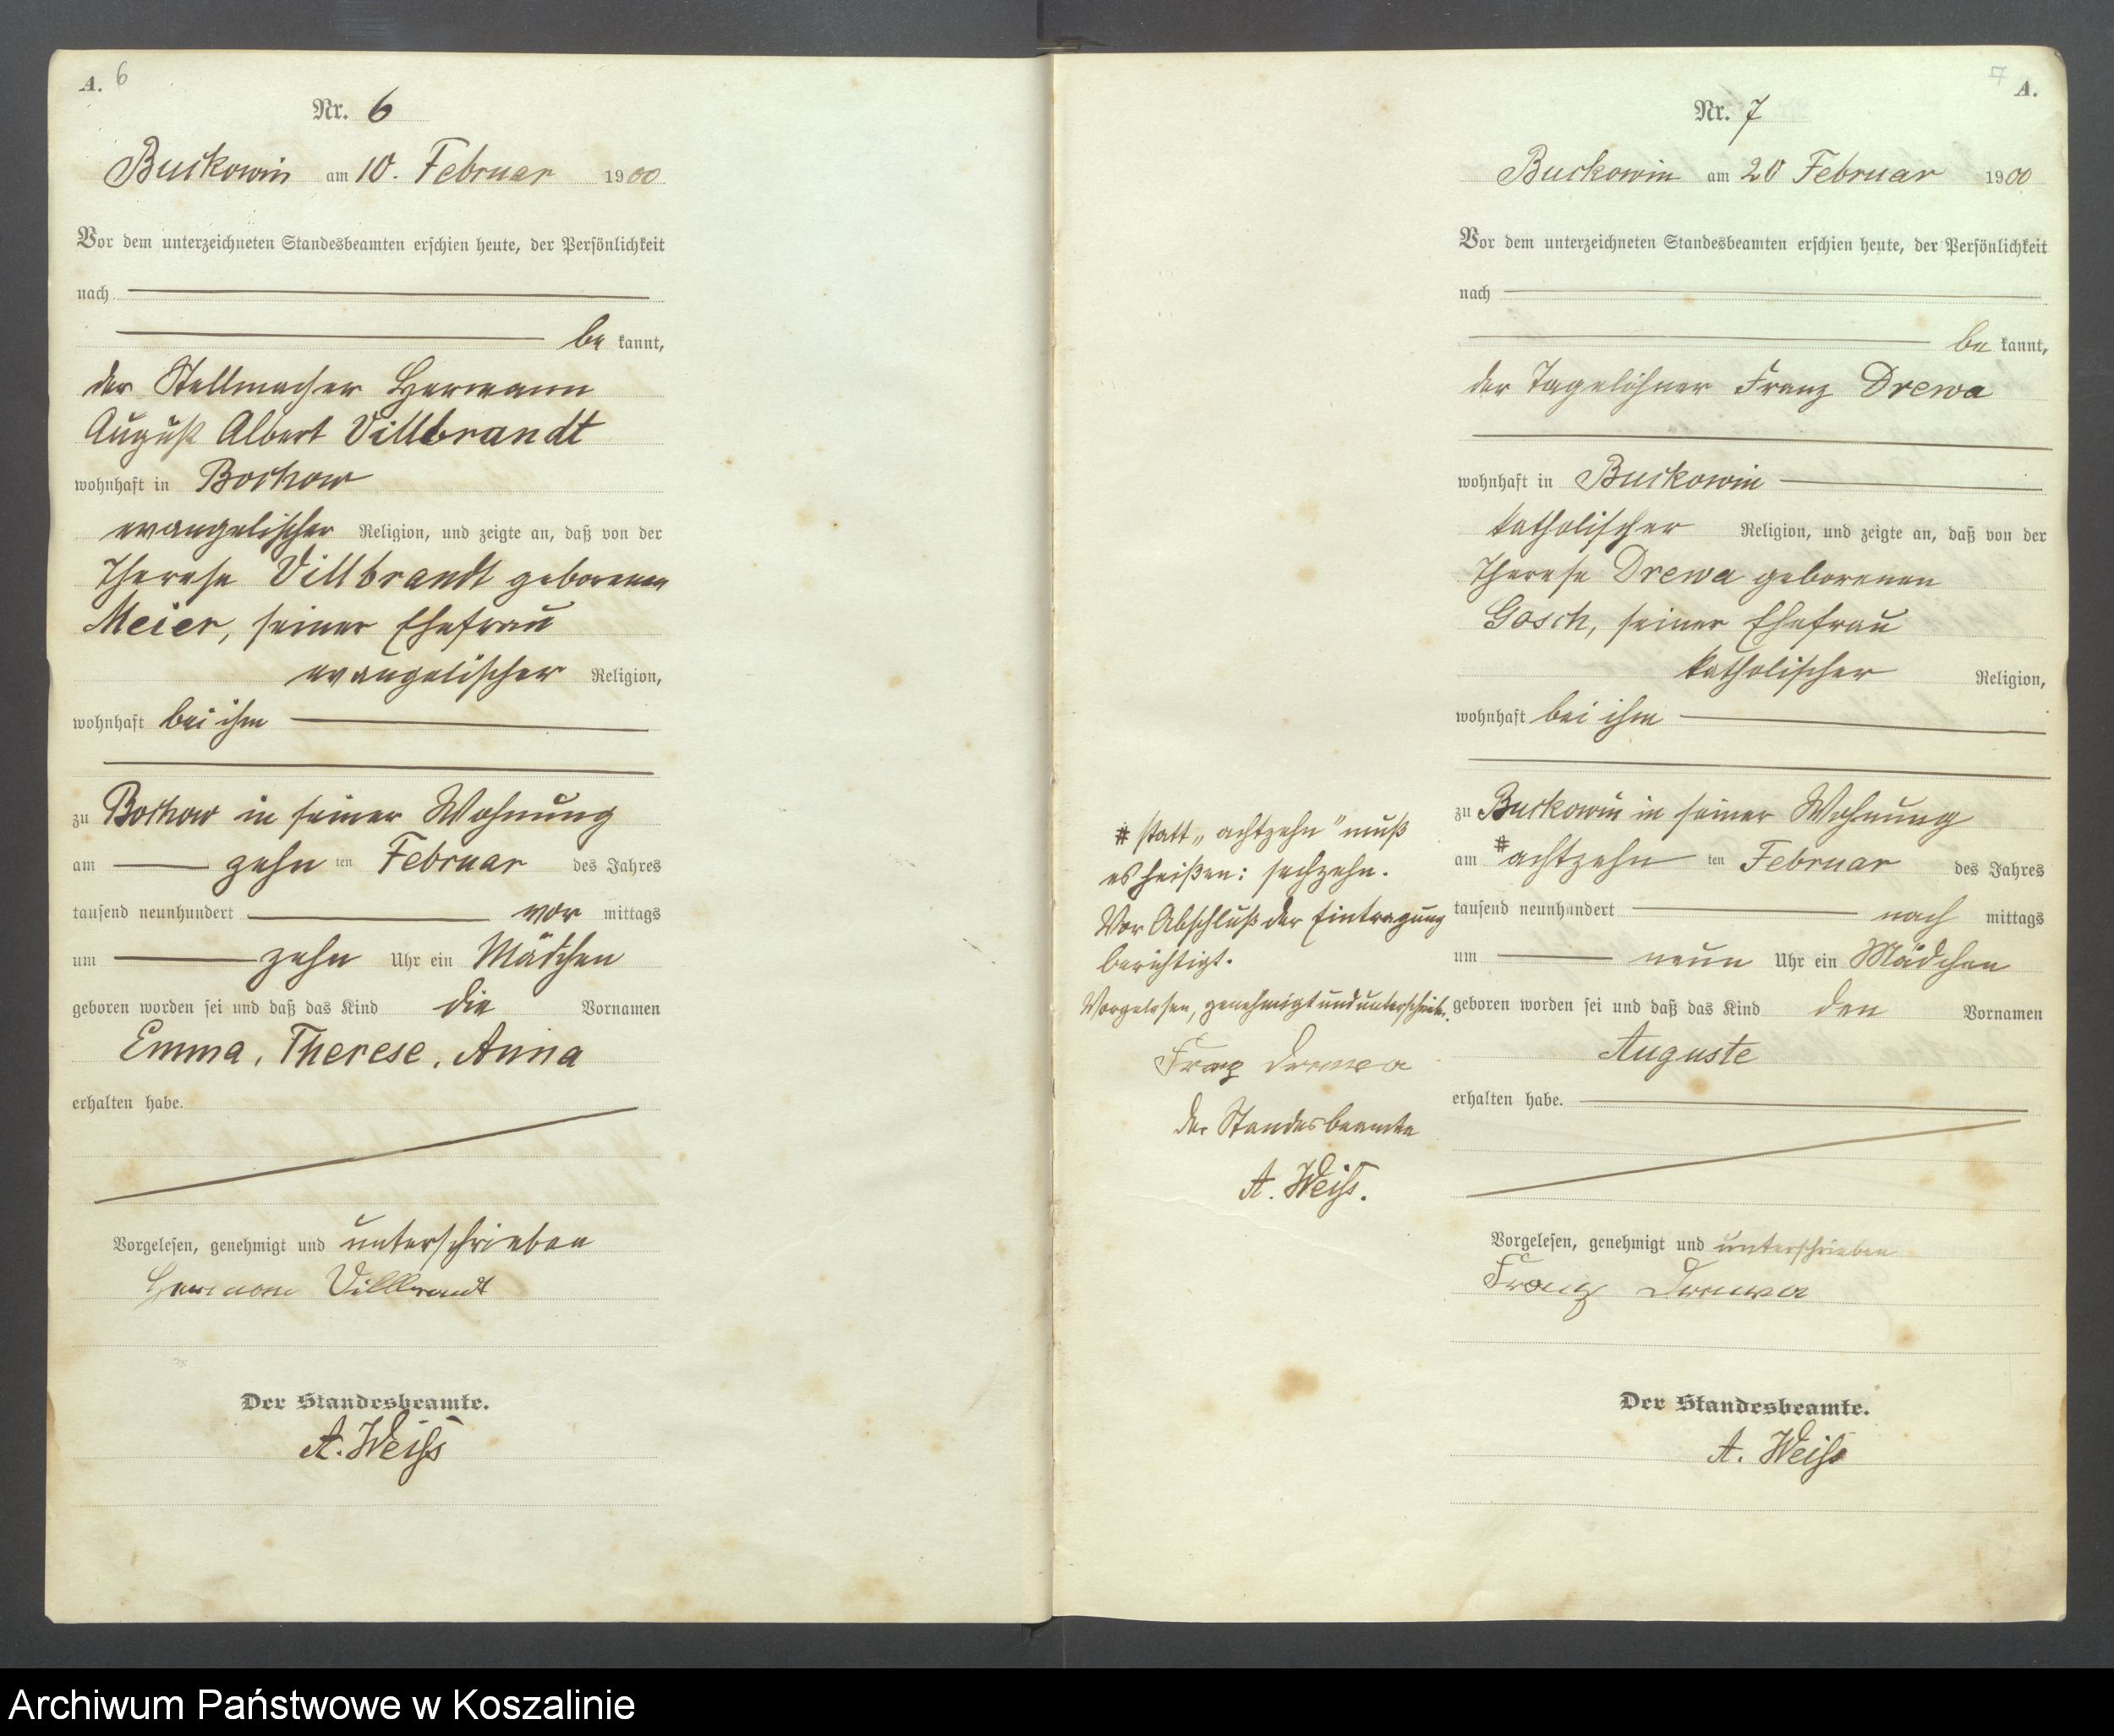 A. 6
Nr. 6
Buckowin am 10. Februar 1900
Vor dem unterzeichneten Standesbeamten erschien heute, der Persönlichkeit
nach
be kannt,
der Stellmacher Hermann
August Albert Villbrandt
wohnhaft in Bochow
evangelischer Religion, und zeigte an, daß von der
Therese Villbrandt geborenen
Meier, seiner Ehefrau
evangelischer Religion,
wohnhaft bei ihm
zu Bochow in seiner Wohnung
am zehn ten Februar des Jahres
tausend neunhundert vor mittags
um zehn Uhr ein Mädchen
geboren worden sei und daß das Kind die Vornamen
Emma, Therese, Anna
erhalten habe.
Vorgelesen, genehmigt und unterschrieben
Hermann Villbrandt
Der Standesbeamte.
A. Weiß
7 A.
Nr. 7
Buckowin am 20 Februar 1900
Vor dem unterzeichneten Standesbeamten erschien heute, der Persönlichkeit
nach
be kannt,
der Tagelöhner Franz Drewa
wohnhaft in Buckowin
katholischer Religion, und zeigte an, daß von der
Therese Drewa geborenen
Gosch, seiner Ehefrau
katholischer Religion,
wohnhaft bei ihm
zu Buckowin in seiner Wohnung
am # achtzehn ten Februar des Jahres
tausend neunhundert nach mittags
um neun Uhr ein Mädchen
geboren worden sei und daß das Kind den Vornamen
Auguste
erhalten habe.
Vorgelesen, genehmigt und unterschrieben
Franz Drewa
Der Standesbeamte.
A. Weiß
# statt „achtzehn" muß
es heißen: sechzehn.
Vor Abschluß der Eintragung
berichtigt.
Vorgelesen, genehmigt und unterschrieben.
Franz Drewa
der Standesbeamte
A. Weiß.
Archiwum Państwowe w Koszalinie